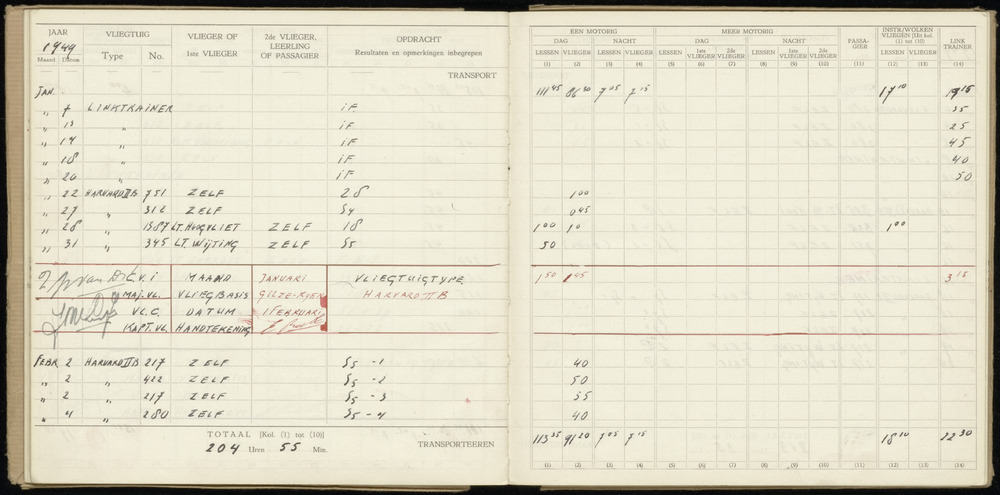 JAAR VLIEGTUIG VLIEGER OF 1ste VLIEGER 2de VLIEGER, LEERLING OF PASSAGIER OPDRACHT Resultaten en opmerkingen inbegrepen EEN MOTORIG MEER MOTORIG PASSA- GIER INSTR/WOLKEN VLIEGEN [Uit kol. (1) tot (10)] LINK TRAINER
1949 DAG NACHT DAG NACHT
Maand Datum Type No. LESSEN VLIEGER LESSEN VLIEGER LESSEN 1ste VLIEGER 2de VLIEGER LESSEN 1ste VLIEGER 2de VLIEGER LESSEN VLIEGER
(1) (2) (3) (4) (5) (6) (7) (8) (9) (10) (11) (12) (13) (14)
TRANSPORT
JAN. 111 45 7 05 7 15 17 10 19 15
" 7 LINKTRAINER iF 35
" 13 " iF 25
" 14 " iF 45
" 18 " iF 40
" 20 " iF 50
" 22 HARVARD II B 751 ZELF 28 1 00
" 27 " 312 ZELF S4 0 45
" 28 " LT. HOOGVLIET ZELF 18 1 00 1 00
" 31 " 345 LT. WIJTING ZELF S5 50
C.V.I MAAND JANUARI VLIEGTUIGTYPE 1 50 1 45 3 15
MAJ. VL. VLIEGBASIS GILZE-RIJEN HARVARD II B
VL.C. DATUM 1 FEBRUARI
KAPT. VL. HANDTEKENING
FEBR 2 HARVARD II B 217 ZELF S5 -1 40
" 2 " 422 ZELF S5 -2 50
" 2 " 217 ZELF S5 -3 35
" 4 " 280 ZELF S5 -4 40
TOTAAL [Kol. (1) tot (10)] TRANSPORTEEREN 113 35 91 20 7 05 7 15 18 10 22 30
204 Uren 55 Min.
(1) (2) (3) (4) (5) (6) (7) (8) (9) (10) (11) (12) (13) (14)